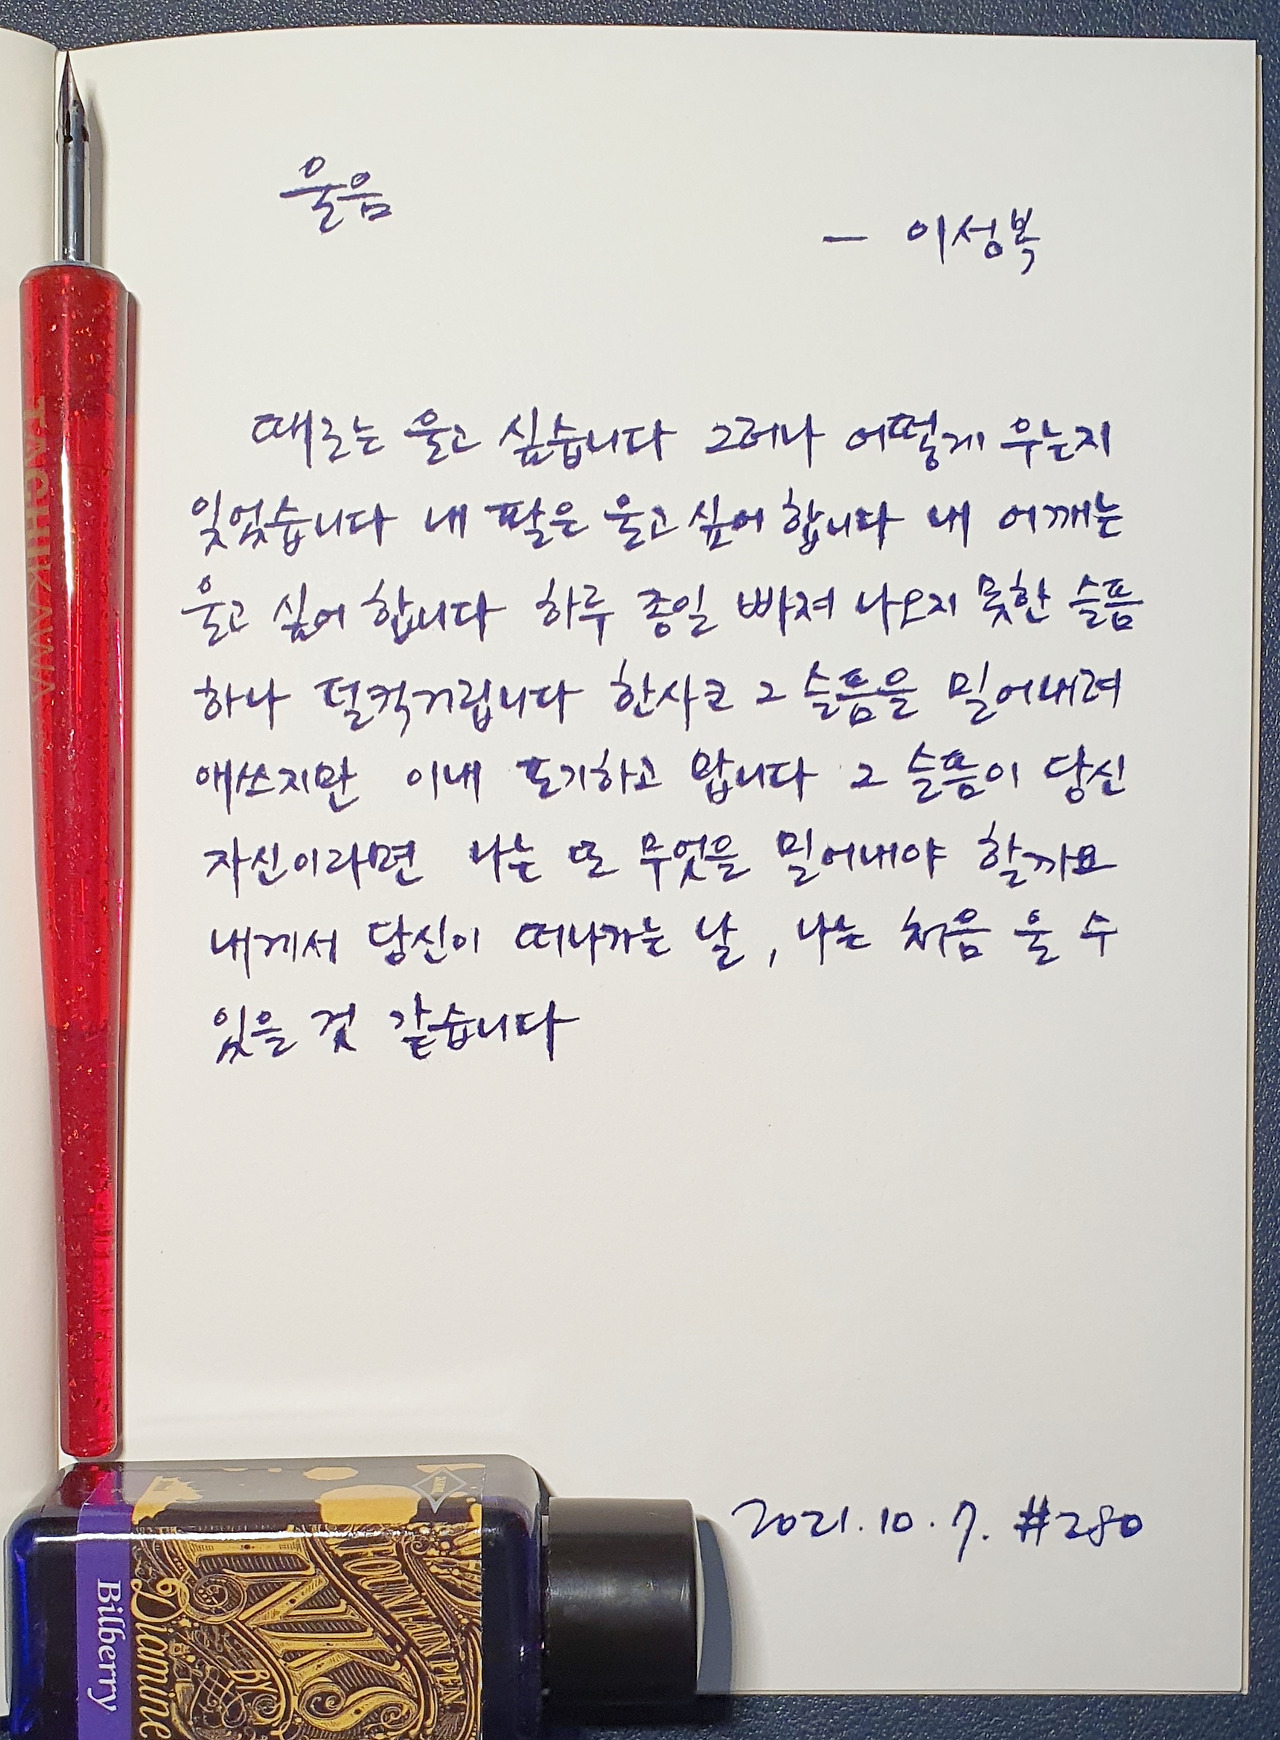 울음
— 이성복
때로는 울고 싶습니다 그러나 어떻게 우는지
잊었습니다 내 팔은 울고 싶어 합니다 내 어깨는
울고 싶어 합니다 하루 종일 빠져 나오지 못한 슬픔
하나 덜컥거립니다 한사코 그 슬픔을 밀어내려
애쓰지만 이내 포기하고 맙니다 그 슬픔이 당신
자신이라면 나는 또 무엇을 밀어내야 할까요
내게서 당신이 떠나가는 날, 나는 처음 울 수
있을 것 같습니다
2021.10.7. #280
TACHIKAWA
Bilberry
Diamine
INKS
FOUNTAIN PEN
BY